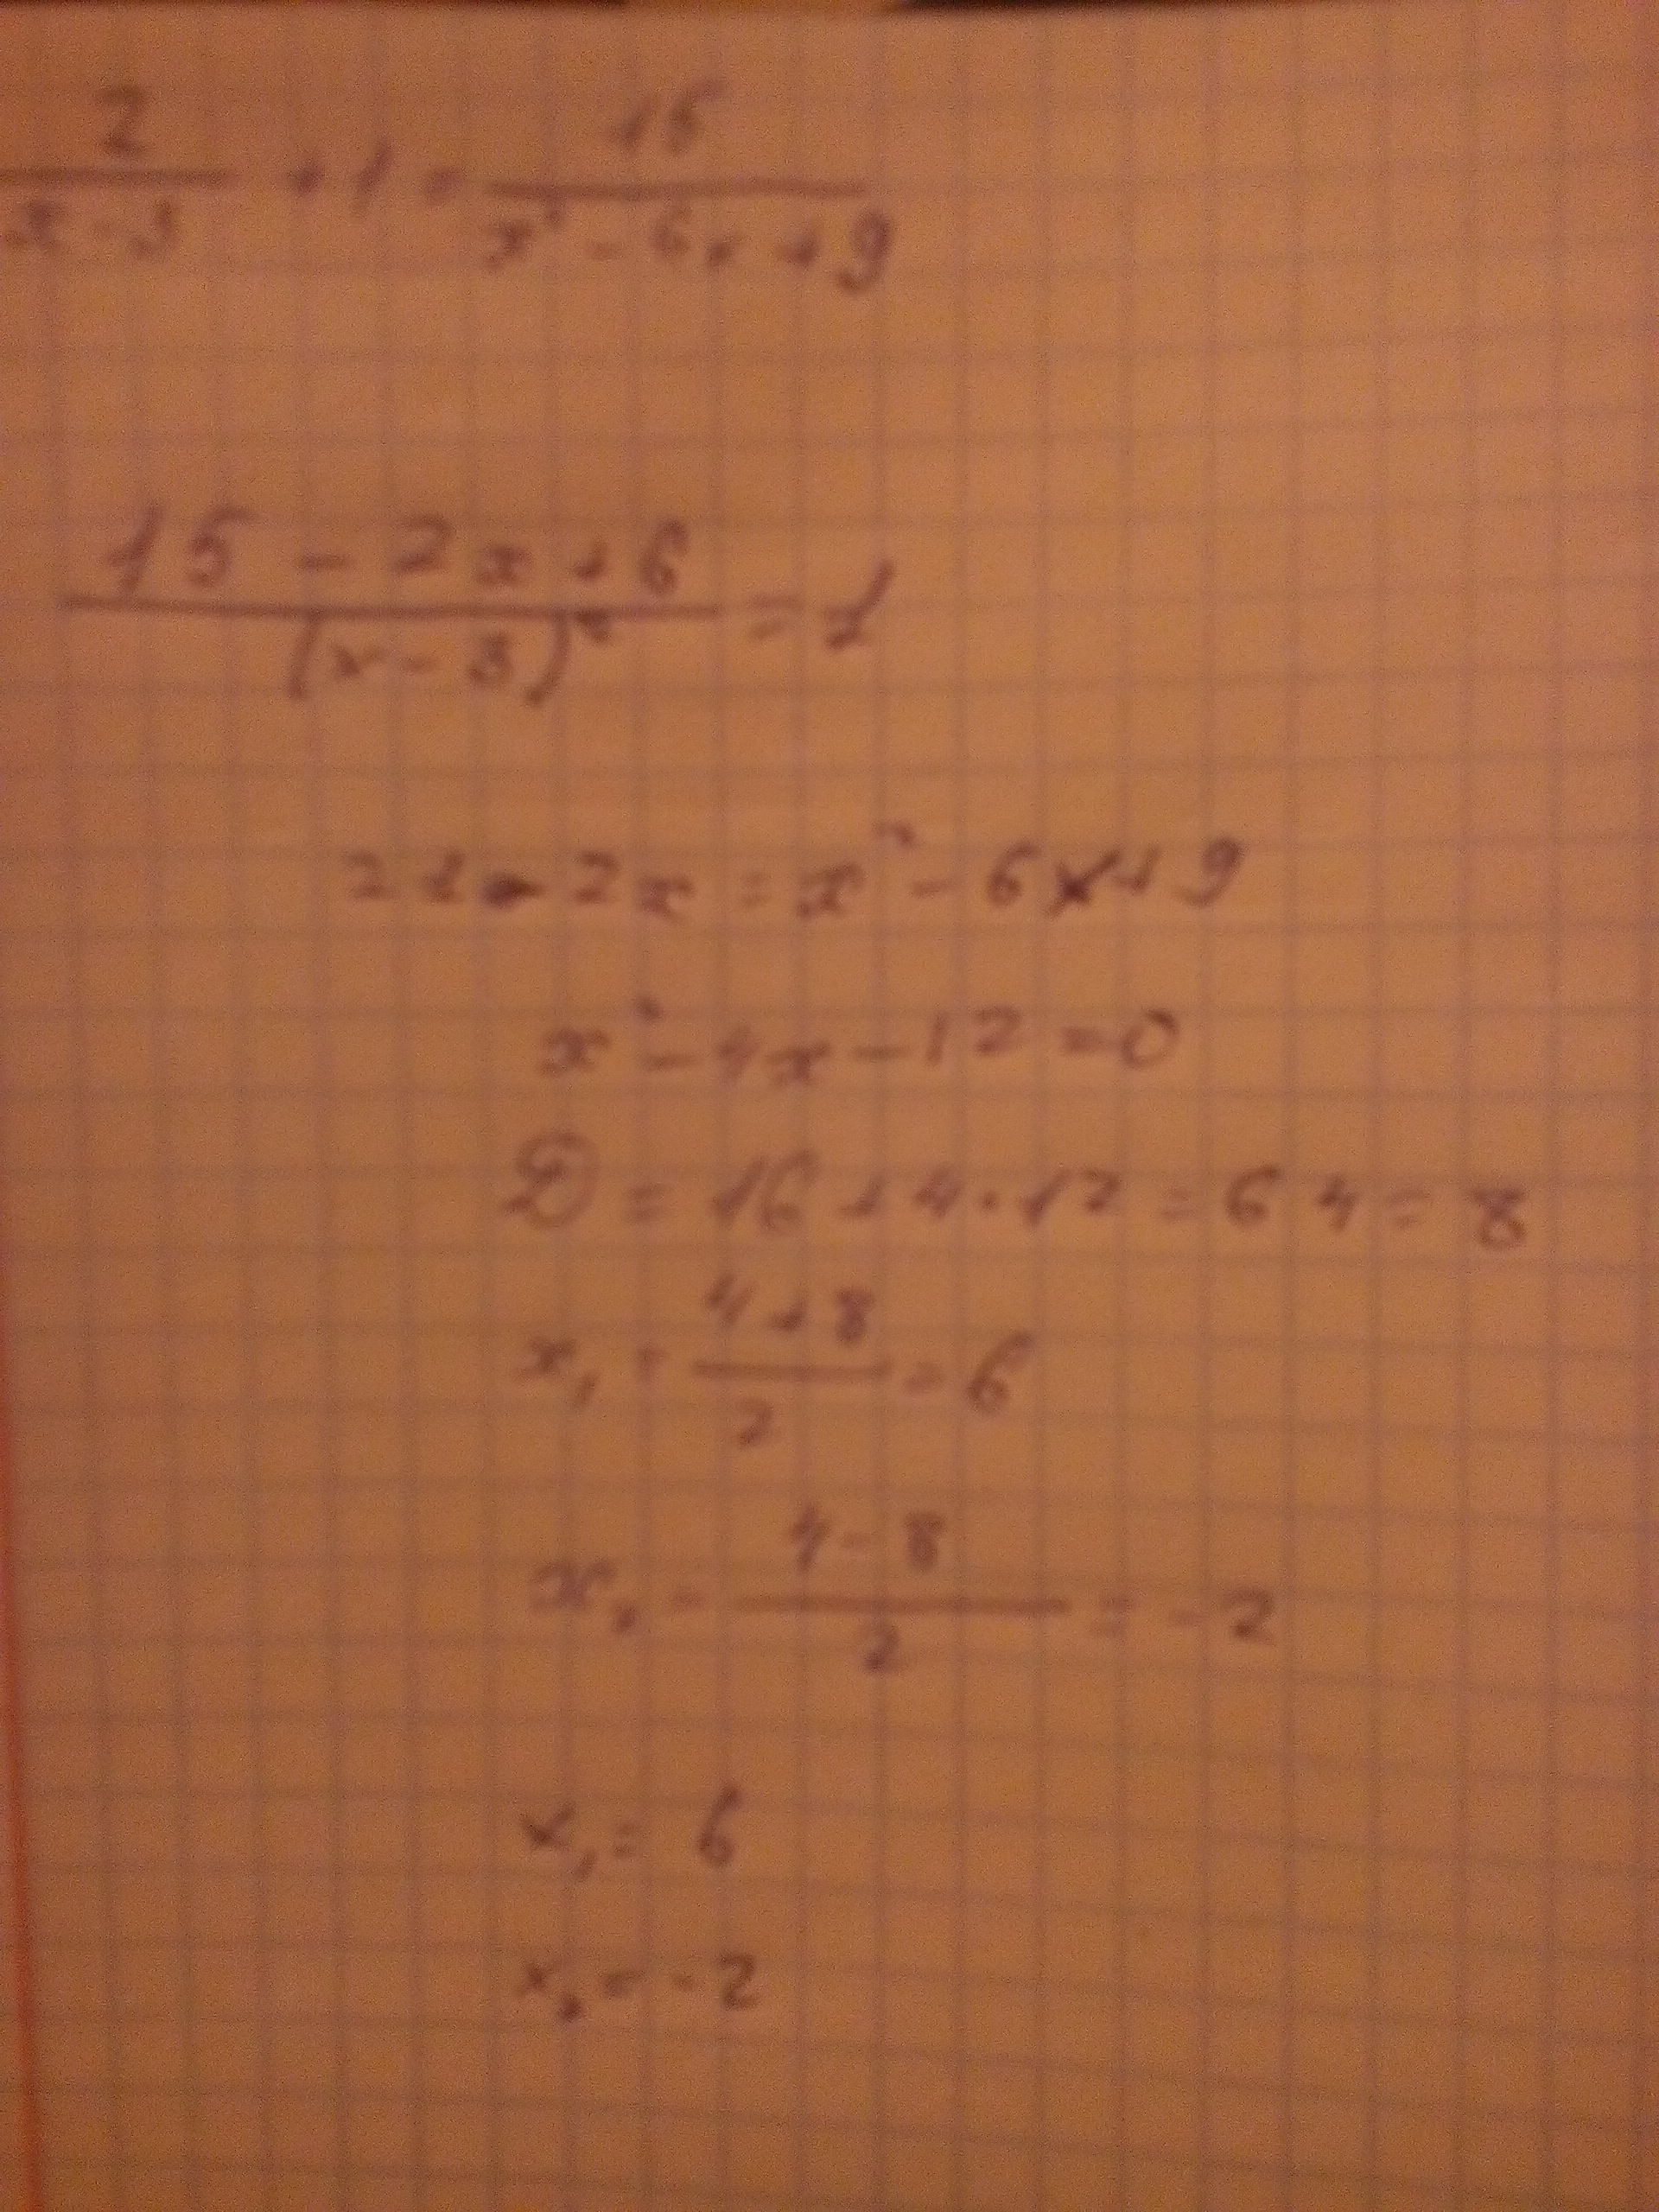 2/(x - 3) + 1 = 15/(x² - 6x + 9)
(15 - 2x + 6)/(x - 3)² = 1
21 - 2x = x² - 6x + 9
x² - 4x - 12 = 0
D = 16 + 4 · 12 = 64 = 8
x₁ = (4 + 8)/2 = 6
x₂ = (4 - 8)/2 = -2
x₁ = 6
x₂ = -2